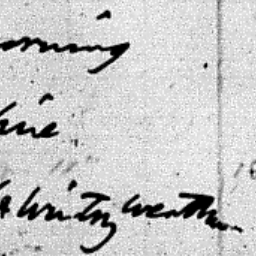 orning
hine
Wintry weather